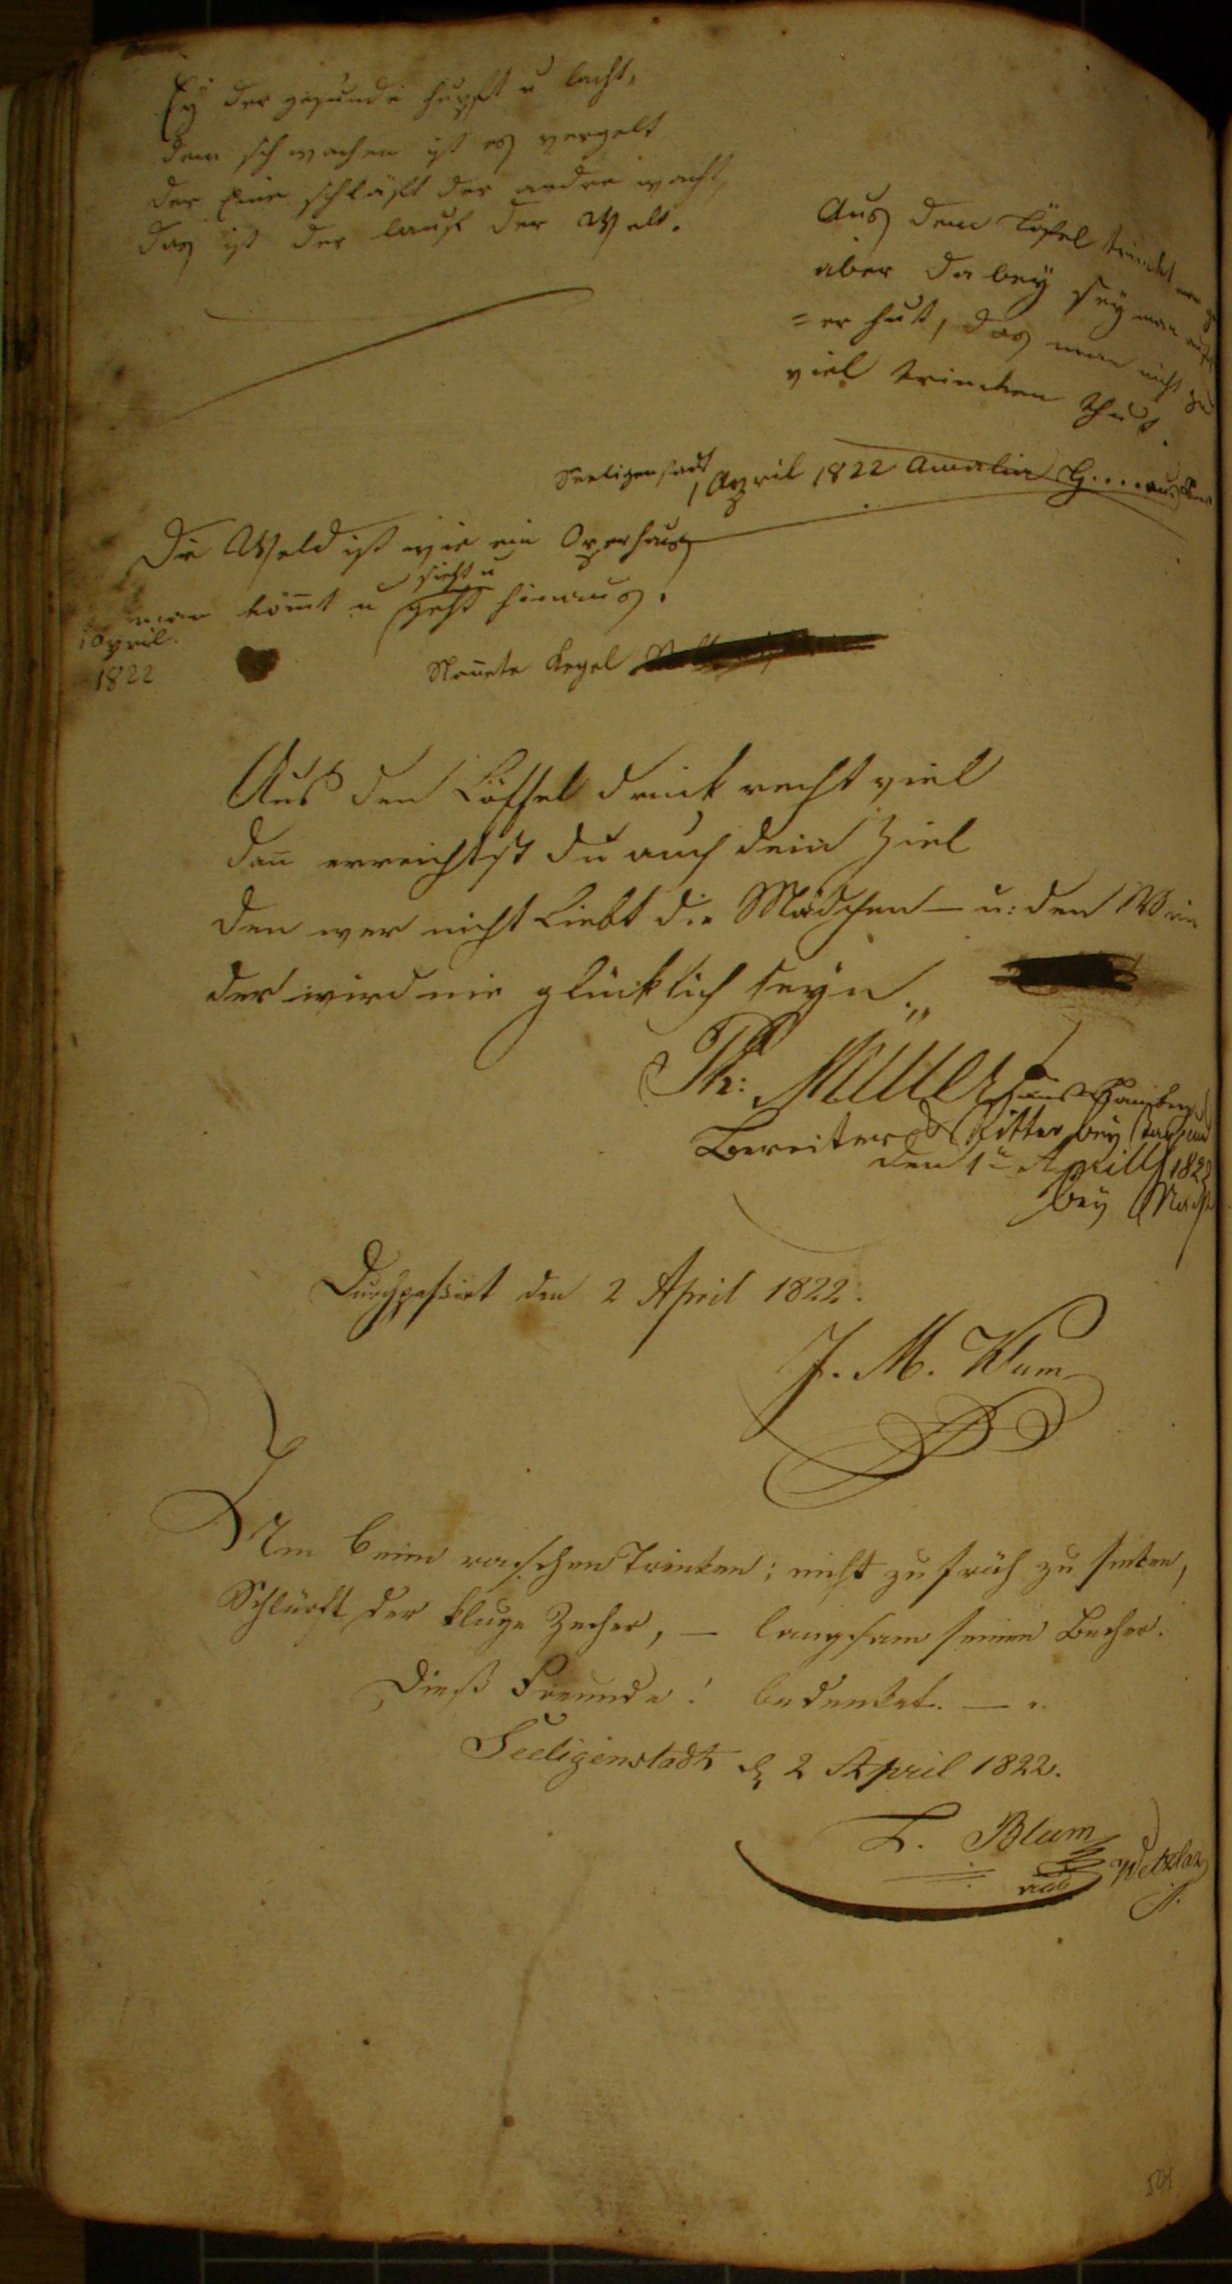 Ey der gesunde hupft u lacht,
dem schwachen ist es vergelt
der Eine schläft der andre wacht,
das ist der lauf der Welt.
Aus dem Löfel trinckt man
aber dabey sey man auf
=er hut, das man nicht zu
viel trincken thut.
Seeligenstadt
1 April 1822 Amalia
Die Weld ist wie ein Operhaus
sieht u
man kom̅t u geht hinaus.
1 April.
1822
Kegel
Aus den Löffel drink recht viel
dan̅ erreichtst du auch dein Ziel
den wer nicht Liebt die Mädchen — u: den Wein
der wird nie glücklich seyn.
Th: Müller aus
Bereiter Ritter bey
den 1ᵗ Aprill 1822
bey Nacht
Durchpassirt den 2 April 1822.
J. M. Klum
Um beim raschen Trinken; nicht zu früh zu sinken,
Schlürft der kluge Zecher, — langsam seinen Becher.
Dieß Freunde! bedenket. —
Seeligenstadt d 2 April 1822.
L. Blum
von Wetzlar